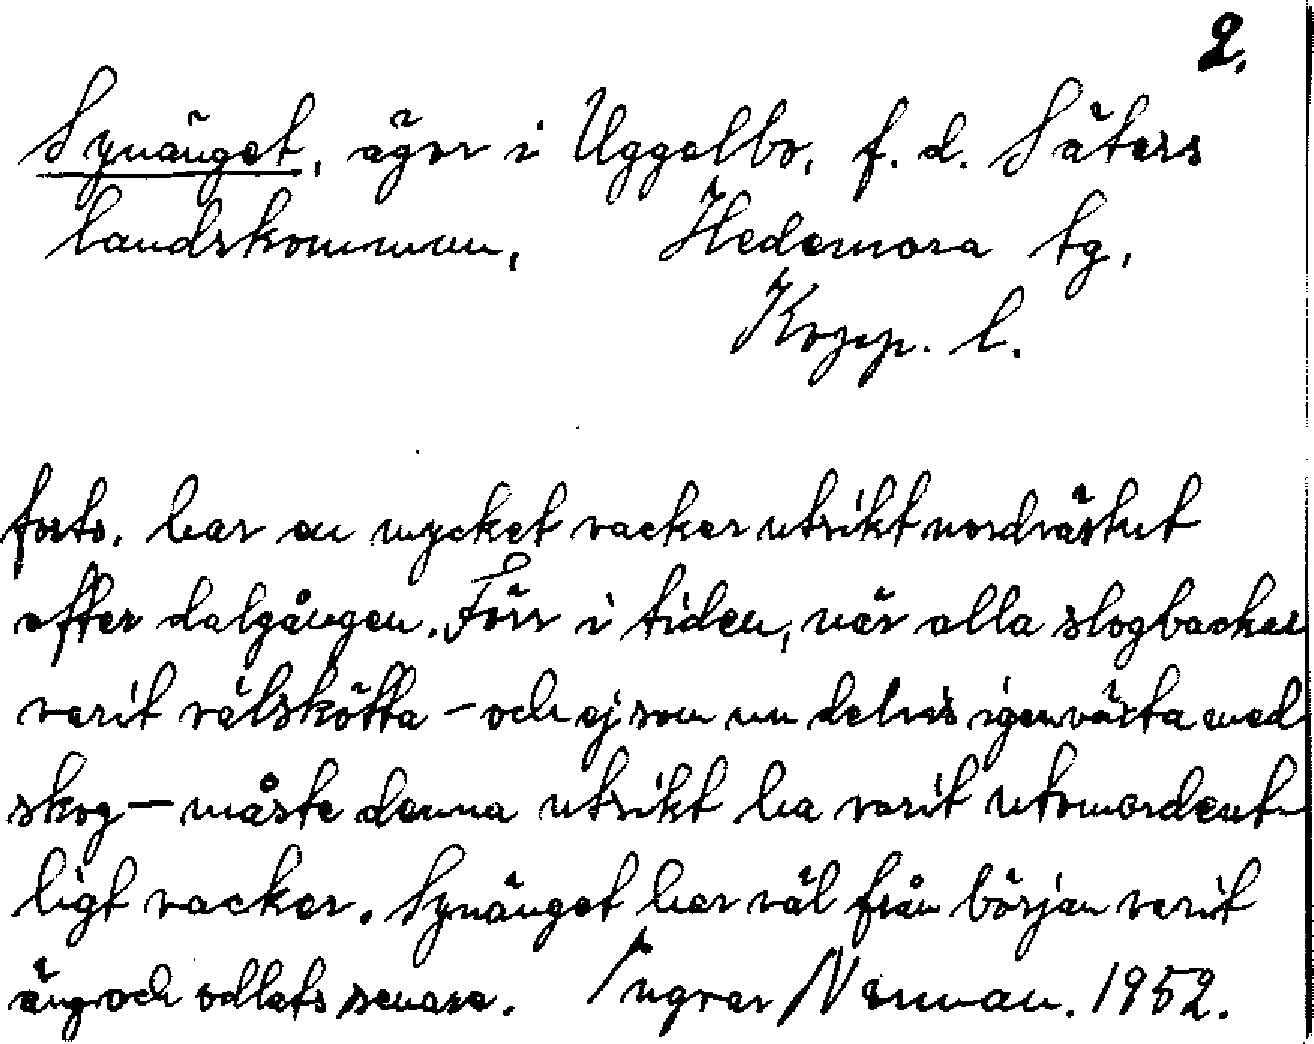 2.
Synänget, ägor i Uggelbo, f. d. Säters
landskommun, Hedemora tg,
Kopp. l.
forts. har en mycket vacker utsikt nordvästut
efter dalgången. Förr i tiden, när alla slogbackar
varit välskötta - och ej som nu delvis igenväxta med
skog - måste denna utsikt ha varit utomordent-
ligt vacker. Synänget har väl från början varit
äng och odlats senare. Ingvar Norman. 1952.